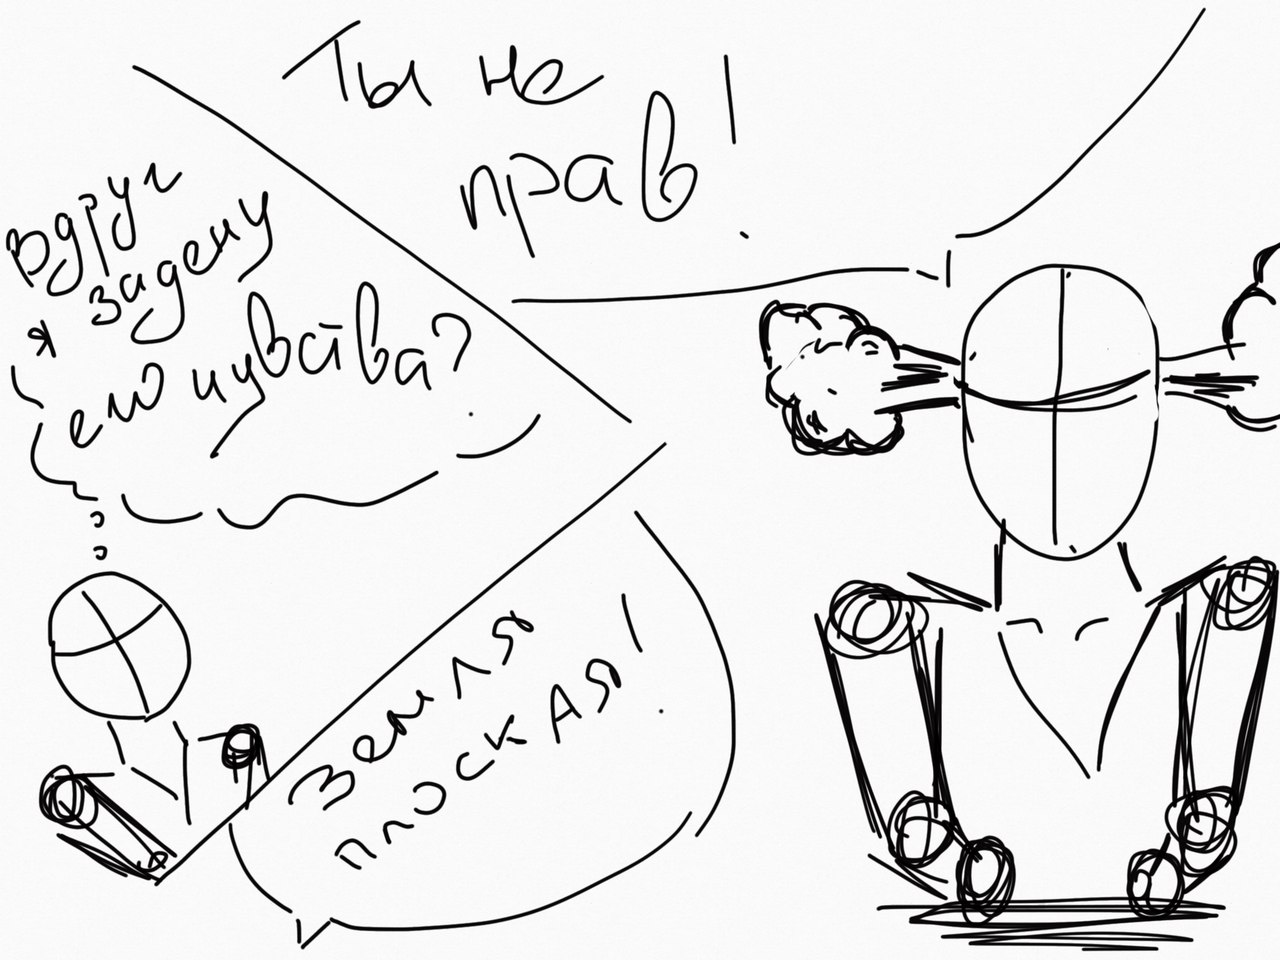 Ты не
прав!
Вдруг
я задену
его чувства?
Земля
плоская!